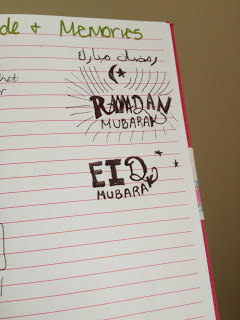 de & Memories
رمضان مبارك
het
r
RAMADAN
MUBARAK
EID
MUBARAK